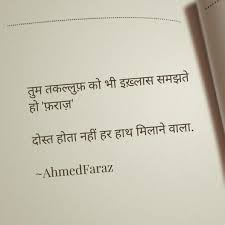 तुम तकल्लुफ़ को भी इख़्लास समझते
हो 'फ़राज़'
दोस्त होता नहीं हर हाथ मिलाने वाला.
~AhmedFaraz